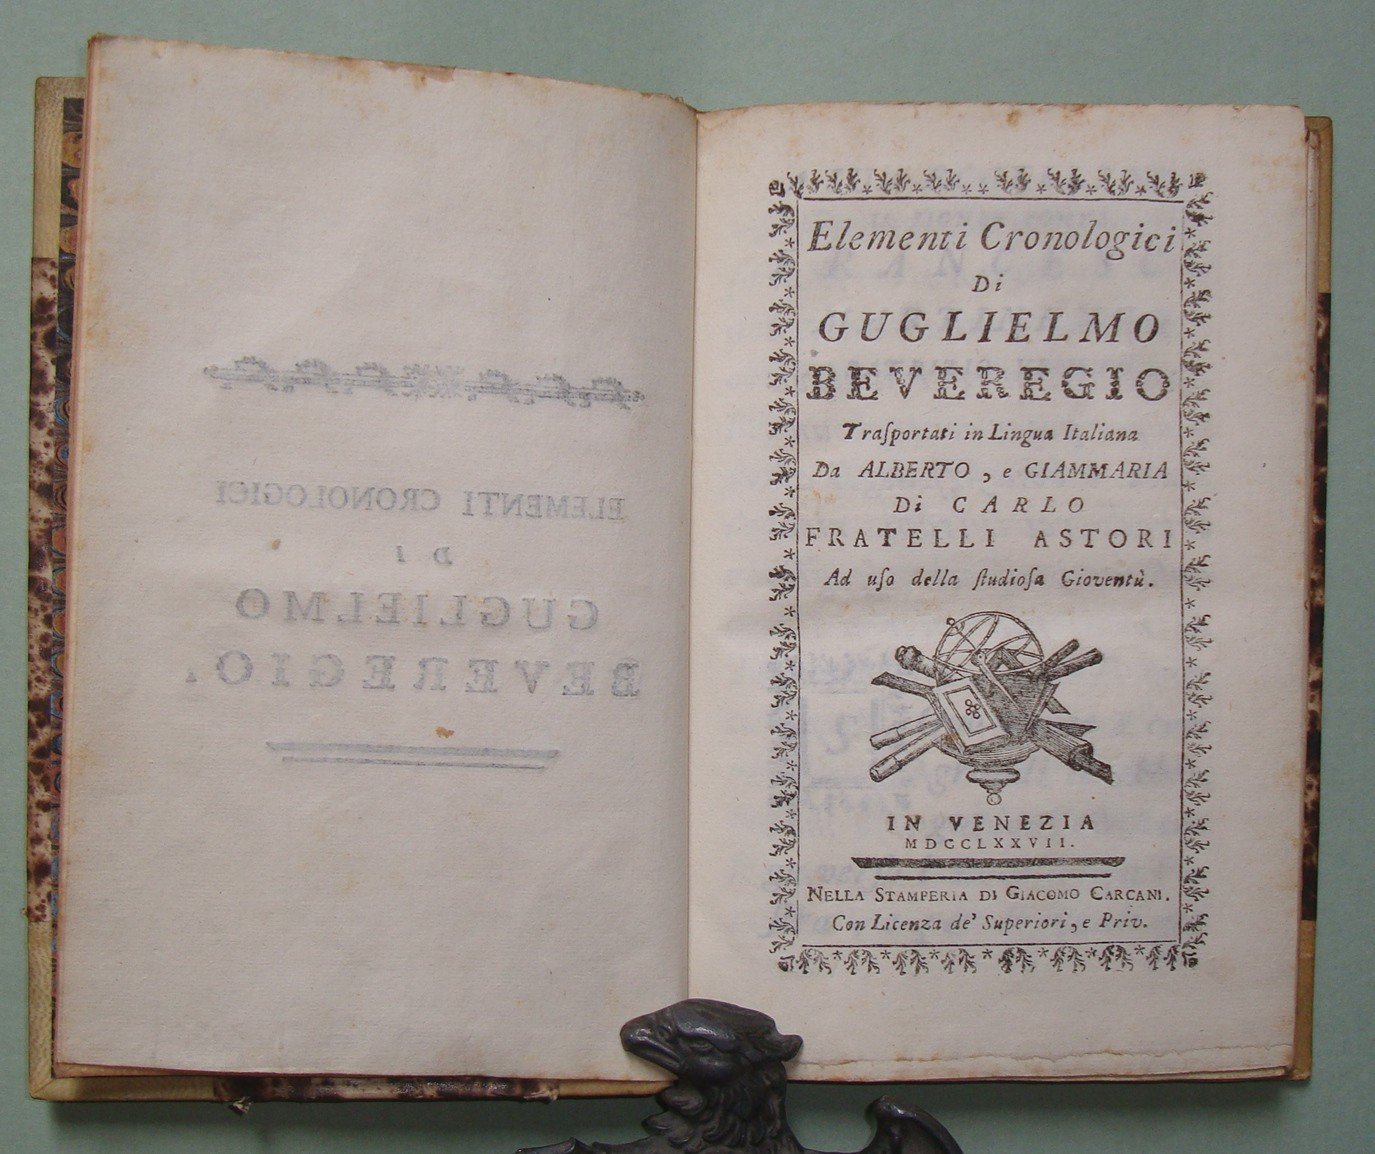 ELEMENTI CRONOLOGICI
DI
GUGLIELMO
BEVEREGIO.
Elementi Cronologici
Di
GUGLIELMO
BEVEREGIO
Traſportati in Lingua Italiana
Da ALBERTO, e GIAMMARIA
Di CARLO
FRATELLI ASTORI
Ad uſo della ſtudioſa Gioventù.
IN VENEZIA
MDCCLXXVII.
NELLA STAMPERIA DI GIACOMO CARCANI.
Con Licenza de' Superiori, e Priv.